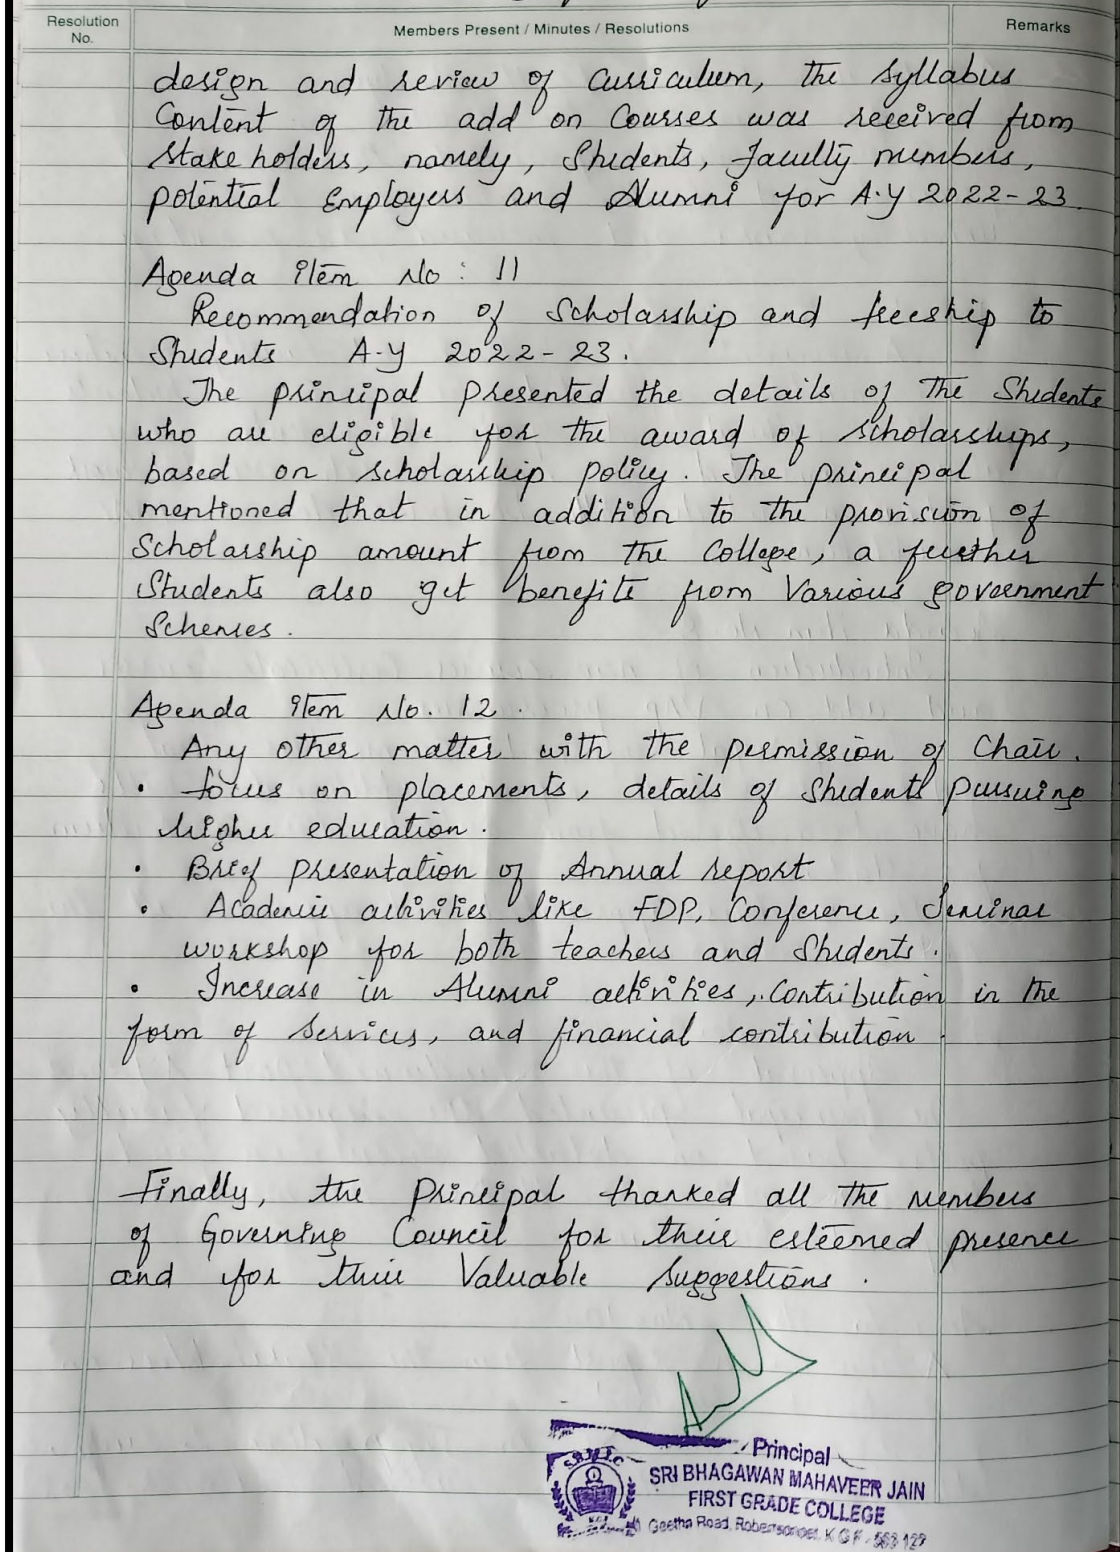 Resolution No.
Members Present / Minutes / Resolutions
Remarks
design and review of Curriculum, the Syllabus
Content of the add on Courses was received from
Stake holders, namely, Students, faculty members,
potential Employers and Alumni for A.Y 2022-23.
Agenda item No : 11
Recommendation of Scholarship and freeship to
Students A-Y 2022-23.
The principal presented the details of the Students
who are eligible for the award of scholarships,
based on scholarship policy. The principal
mentioned that in addition to the provision of
Scholarship amount from the College, a further
Students also get benefits from Various government
Schemes.
Agenda item No. 12.
Any other matter with the permission of Chair.
• focus on placements, details of Students pursuing
higher education.
• Brief presentation of Annual report
• Academic activities like FDP, Conference, Seminar
workshop for both teachers and Students.
• Increase in Alumni activities, Contribution in the
form of Services, and financial contribution.
Finally, the Principal thanked all the members
of Governing Council for their esteemed presence
and for their Valuable Suggestions.
Principal
SRI BHAGAWAN MAHAVEER JAIN
FIRST GRADE COLLEGE
Geetha Road, Robertsonpet, K G F - 563 122